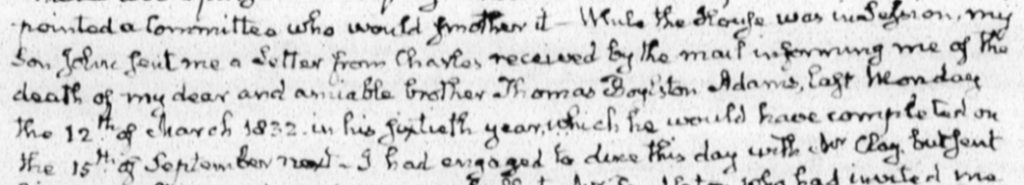 pointed a Committee who would smother it — While the House was in Session, my
Son John sent me a Letter from Charles received by the mail informing me of the
death of my dear and amiable brother Thomas Boylston Adams, last Monday
the 12th of March 1832. in his sixtieth year, which he would have completed on
the 15th of September next — I had engaged to dine this day with Mr Clay, but sent
who had invited me